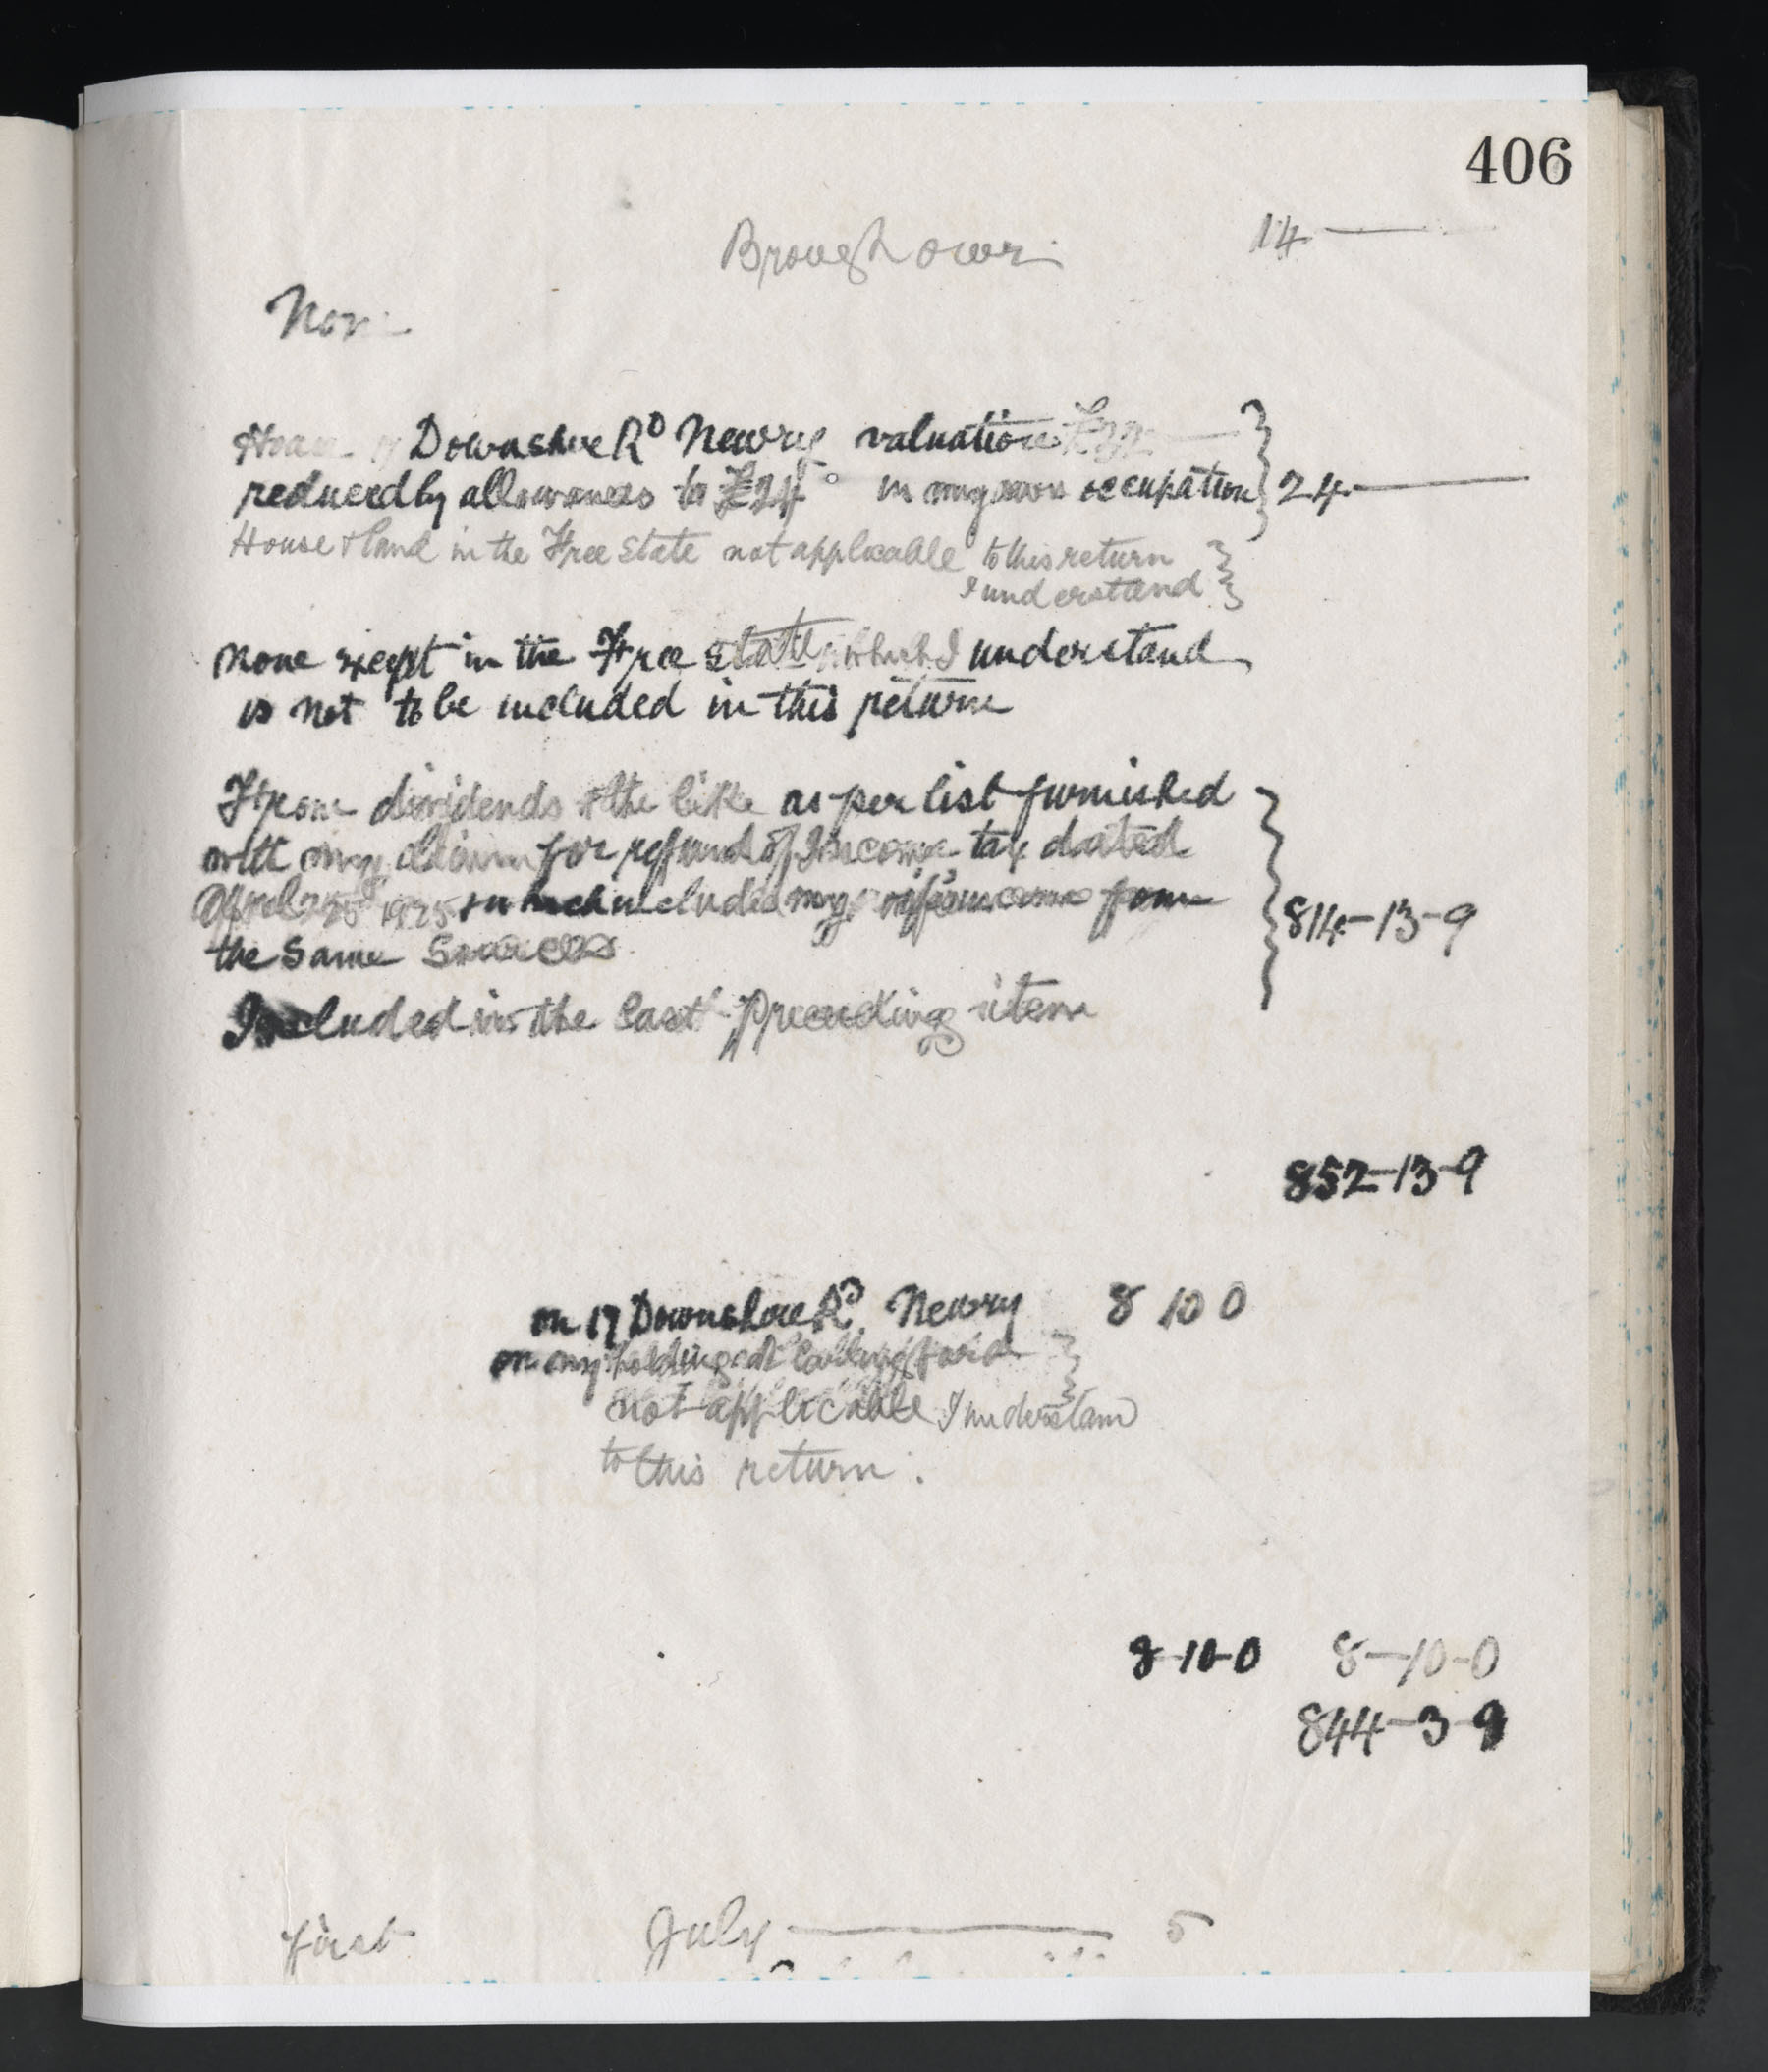 406
Brought over 14 —
None
House 17 Downshire Rd Newry valuation £32 —
reduced by allowances to £24 in my own occupation 24 —
House & land in the Free State not applicable to this return
I understand
none except in the Free State which I understand
is not to be included in this return
From dividends & the like as per list furnished
with my claim for refund of Income tax dated
April 25th 1925 which includes my wife's income from
the same sources 814-13-9
Included in the last preceding item
852-13-9
on 17 Downshire Rd Newry 8 10 0
on my holding at
not applicable I understand
to this return.
8-10-0 8-10-0
844-3-9
first July — 5